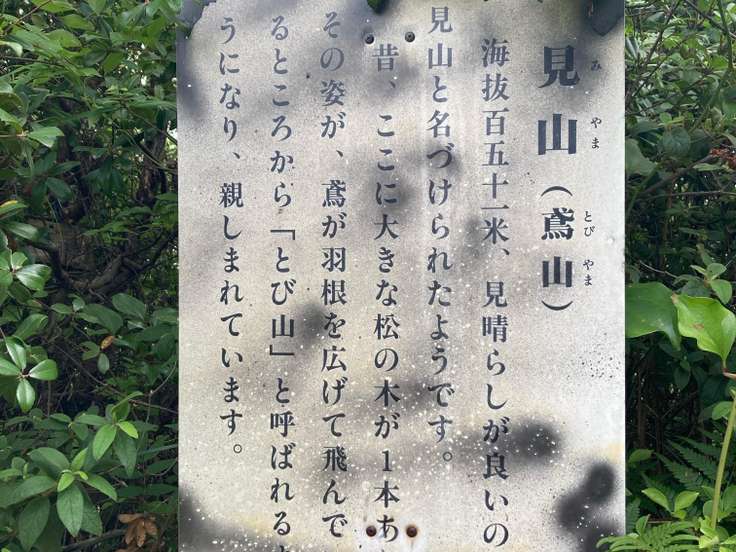 見山（鳶山）
みやま とびやま
海抜百五十一米、見晴らしが良いの
見山と名づけられたようです。
昔、ここに大きな松の木が１本あ
その姿が、鳶が羽根を広げて飛んで
るところから「とび山」と呼ばれる
うになり、親しまれています。